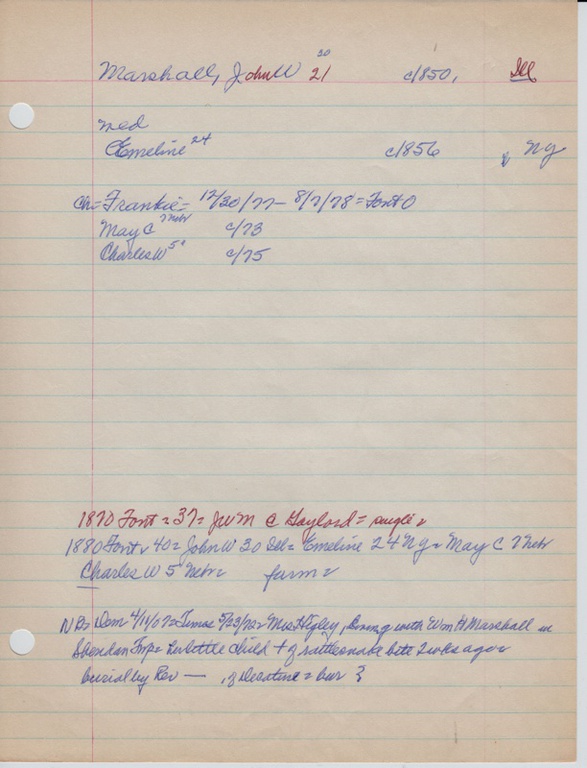 Marshall, John W 30 21 c/1850, Ill
med
Emeline 24 c/1856 , Ny
Ch = Frankie = 12/30/77 - 8/7/78 = Font O
May C 7 Nebr c/73
Charles W 5 " c/75
1870 Font = 37 = JWM @ Gaylord = single =
1880 Font = 40 = John W 30 Ill = Emeline 24 Ny = May C 7 Nebr
Charles W 5 Nebr = farm =
NB = Dem 4/11/07 = Times 5/23/ = Mrs Higley, living with Wm H Marshall in
Sheridan Twp = little child + of rattlesnake bite 2 wks ago =
burial by Rev — , of Decatur = bur